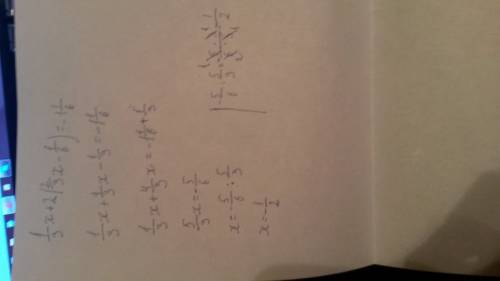 1/3 x + 2(2/3 x - 1/6) = -1 1/6
1/3 x + 4/3 x - 1/3 = -1 1/6
1/3 x + 4/3 x = -1 1/6 + 1/3
5/3 x = -5/6
x = -5/6 : 5/3
x = -1/2